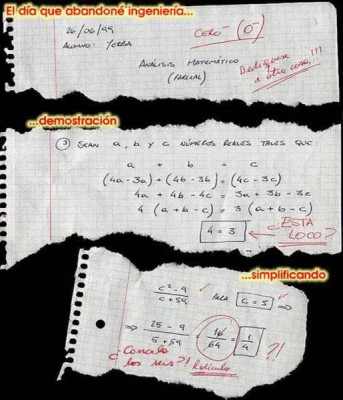 El día que abandoné ingeniería...
26/06/99
CERO⁻ (0⁻)
ALUMNO: YERGA
ANÁLISIS MATEMÁTICO
(PARCIAL)
Dedíquese
a otra cosa!!!
...demostración
3) SEAN a, b y c NÚMEROS REALES TALES QUE
a + b = c
(4a - 3a) + (4b - 3b) = (4c - 3c)
4a + 4b - 4c = 3a + 3b - 3c
4 (a + b - c) = 3 (a + b - c)
4 = 3
¿ESTA
LOCO?
...simplificando
c² - 9 / c + 59 PARA c = 5 ⇒
⇒ 25 - 9 / 5 + 59 = 16 / 64 = 1 / 4 ?!
¿Cancela
los seis?! Ridículo